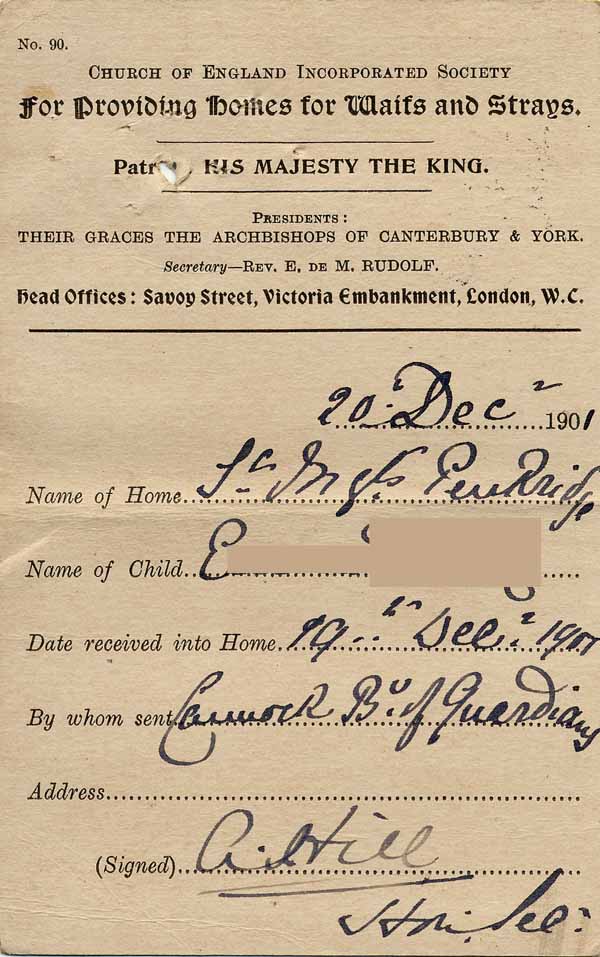 No. 90.
CHURCH OF ENGLAND INCORPORATED SOCIETY
For Providing Homes for Waifs and Strays.
HIS MAJESTY THE KING.
PRESIDENTS:
THEIR GRACES THE ARCHBISHOPS OF CANTERBURY & YORK.
Secretary—REV. E. DE M. RUDOLF.
Head Offices: Savoy Street, Victoria Embankment, London, W.C.
20 Dec 1901
Name of Home St Penkridge
Name of Child E
Date received into Home 19th Dec 1901
By whom sent Cannock Bd of Guardians
Address
(Signed) A. Hill
Hon. Sec: